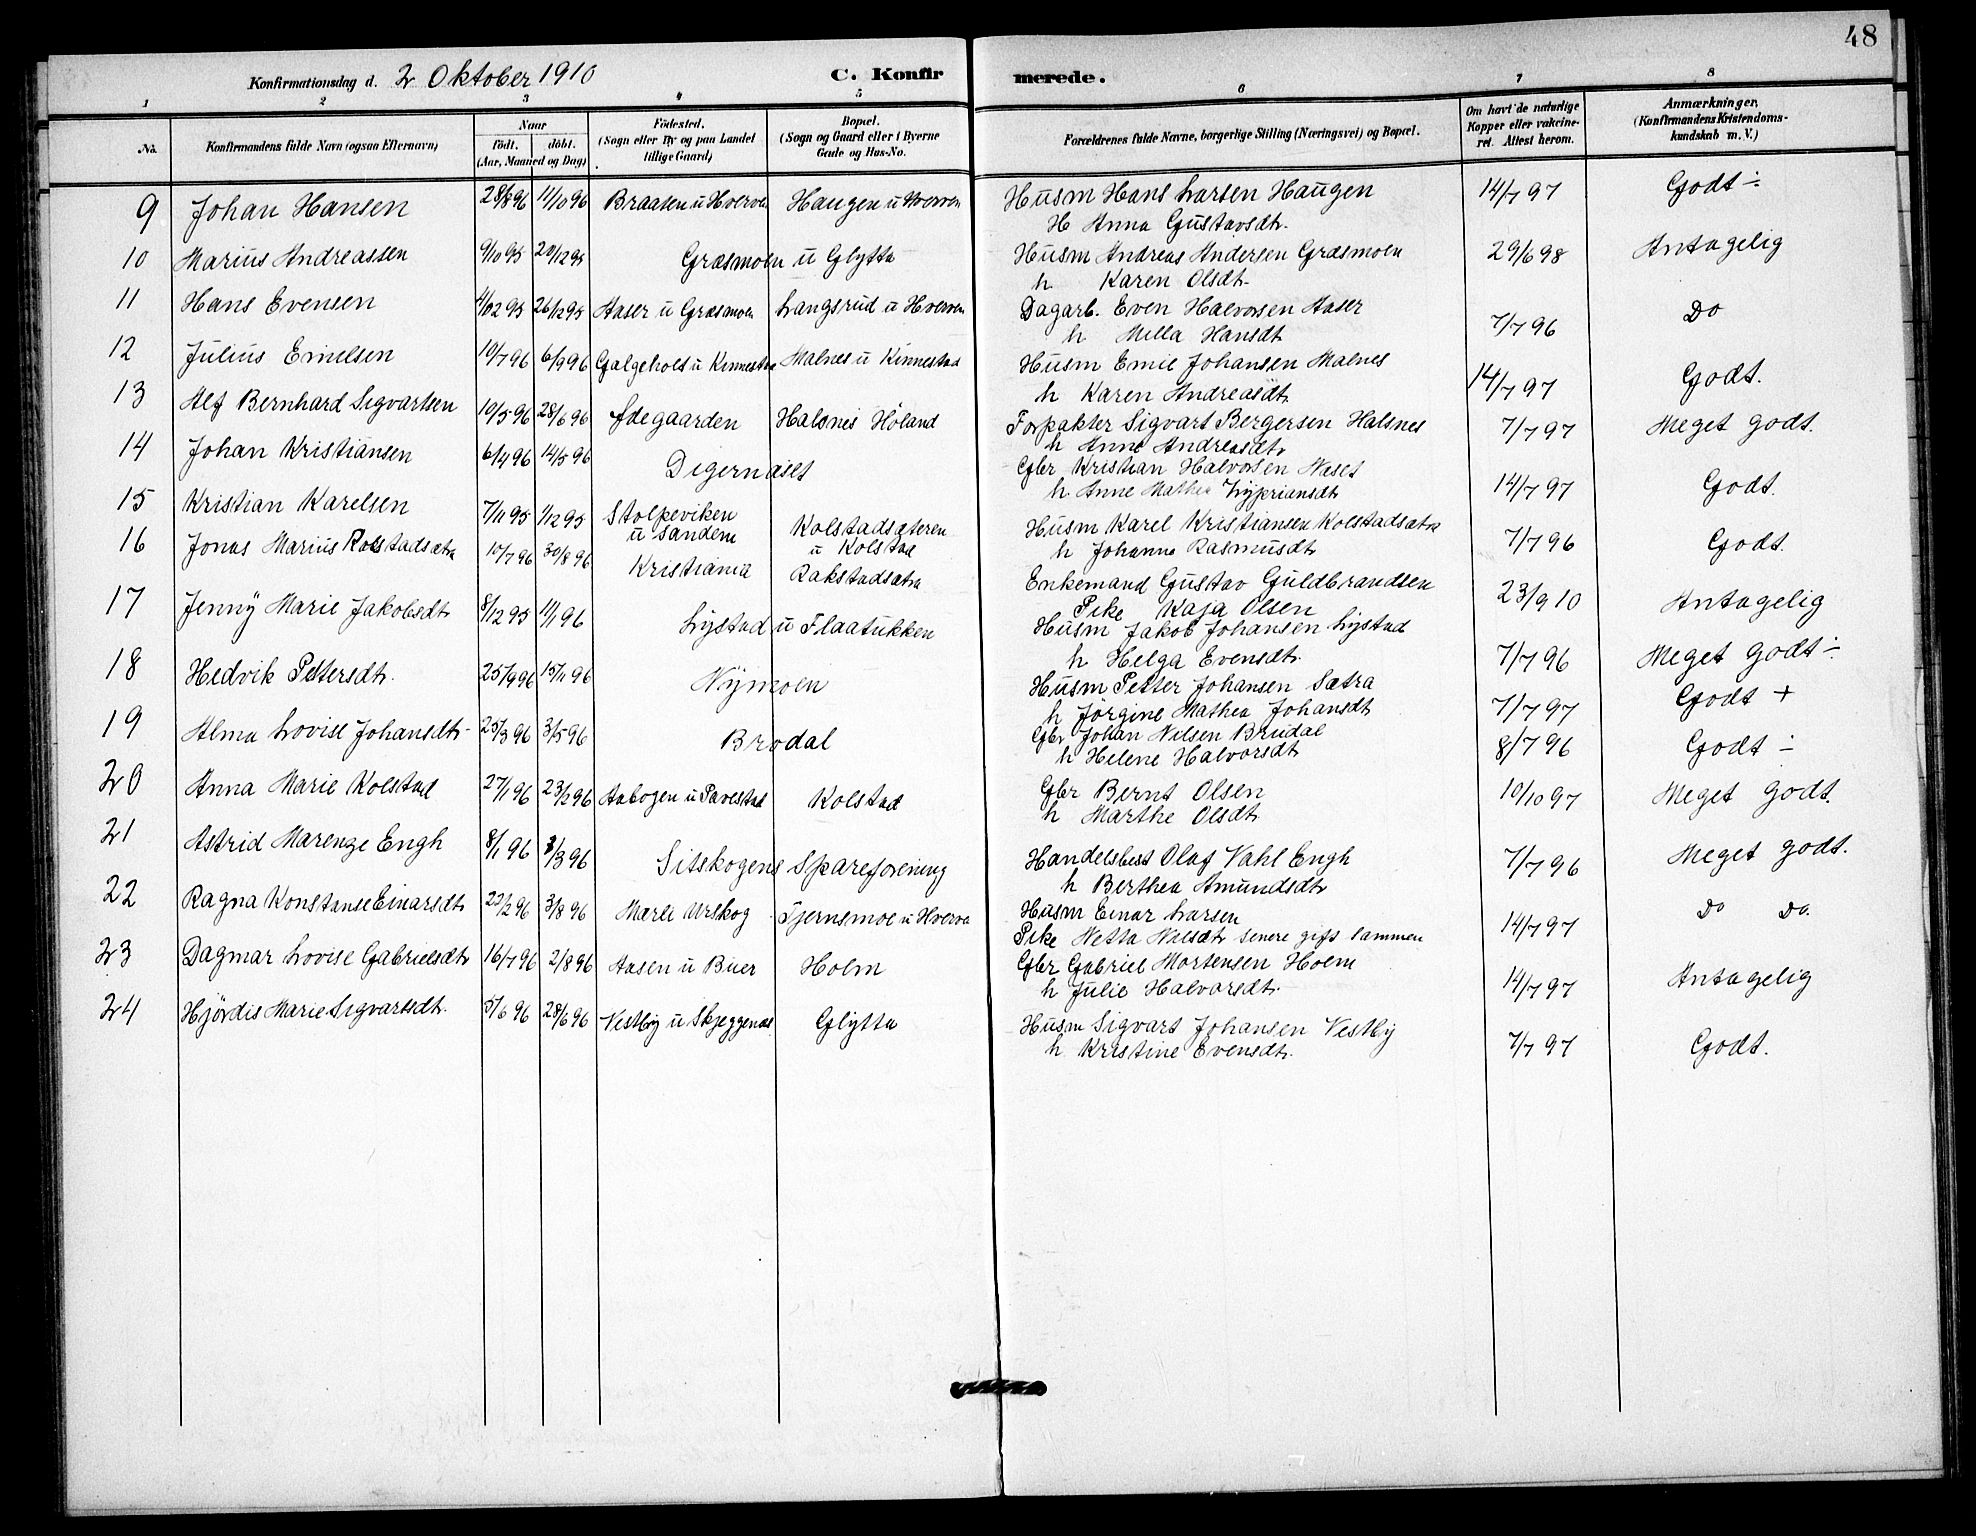 48
Konfirmationsdag d. 2 Oktober 1910 C. Konfirmerede.
1 2 3 4 5 6 7 8
No. Konfirmandens fulde Navn (ogsaa Efternavn) Naar født. døbt. (Aar, Maaned og Dag) Fødested. (Sogn eller By og paa Landet tillige Gaard) Bopæl. (Sogn og Gaard eller i Byerne Gade og Hus-No. Forældrenes fulde Navne, borgerlige Stilling (Næringsvei) og Bopæl. Om havt de naturlige Kopper eller vakcineret. Attest herom. Anmærkninger, (Konfirmandens Kristendomskundskab m. V.)
9 Johan Hansen 28/8 96 11/10 96 Braaten u Hverven Haugen u Hverven Husm Hans Larsen Haugen 14/7 97 Godt ÷
H Anna Gustavsdtr.
10 Marius Andreassen 9/10 95 29/12 95 Græsmoen u Glytta Husm Andreas Andersen Græsmoen 29/6 98 Antagelig
h Karen Olsdtr
11 Hans Evensen 4/02 95 26/12 95 Aaser u Græsmoen Langsrud u Hverven Dagarb. Even Halvorsen Aaser 7/7 96 Do
h Milla Hansdtr
12 Julius Emilsen 10/7 96 6/9 96 Galgeholt u Kinnestad Malnes u Kinnestad Husm Emil Johansen Malnes 14/7 97 Godt.
h Karen Andreasdtr
13 Alf Bernhard Sigvartsen 10/5 96 28/6 96 Ødegaarden Halsnes Høland Forpakter Sigvart Bergersen Halsnes 7/7 97 Meget godt.
h Anne Andreasdtr
14 Johan Kristiansen 6/4 96 14/5 96 Digernæset Gbr Kristian Halvorsen Næset 14/7 97 Godt.
h Anne Mathea Zypriansdtr
15 Kristian Karelsen 7/11 95 1/12 95 Stolpeviken u Sandem Kolstadsæteren u Kolstad Husm Karel Kristiansen Kolstadsætra 7/7 96 Godt.
h Johanne Rasmusdtr
16 Jonas Marius Rakstadsætra 10/7 96 30/8 96 Kristiania Rakstadsætra Enkemand Gustav Guldbrandsen 23/9 10 Antagelig
Pike Kaja Olsen
17 Jenny Marie Jakobsdtr 8/12 95 1/1 96 Lystad u Flaatukken Husm Jakob Johansen Lystad 7/7 96 Meget godt ÷
h Helga Evensdtr.
18 Hedvik Pettersdtr. 25/9 96 15/11 96 Nymoen Husm Petter Johansen Sætra 7/7 97 Godt +
h Jørgine Mathea Johansdtr
19 Alma Lovise Johansdtr 25/3 96 3/5 96 Brødal Gbr Johan Nilsen Brudal 8/7 96 Godt ÷
h Helene Halvorsdtr
20 Anna Marie Kolstad 27/1 96 23/2 96 Aabogen u Tævestad Kolstad Gbr Bernt Olsen 10/10 97 Meget godt.
h Marthe Olsdtr
21 Astrid Marenze Engh 8/1 96 8/3 96 Sitskogens Spareforening Handelsbest Olaf Vahl Engh 7/7 96 Meget godt.
h Berthea Amundsdtr
22 Ragna Konstanse Einarsdtr 22/2 96 3/8 96 Marli Urskog Tjernsmoe u Hverva Husm Einar Larsen 14/7 97 Do Do.
Pike Netta Nilsdtr senere gift sammen
23 Dagmar Lovise Gabrielsdtr 16/7 96 2/8 96 Aasen u Buer Holm Gbr Gabriel Mortensen Holm 14/7 97 Antagelig
h Julie Halvorsdtr.
24 Hjørdis Marie Sigvartsdtr. 5/6 96 28/6 96 Vestby u Skjeggenæs Glytta Husm Sigvart Johansen Vestby 7/7 97 Godt.
h Kristine Evensdtr.